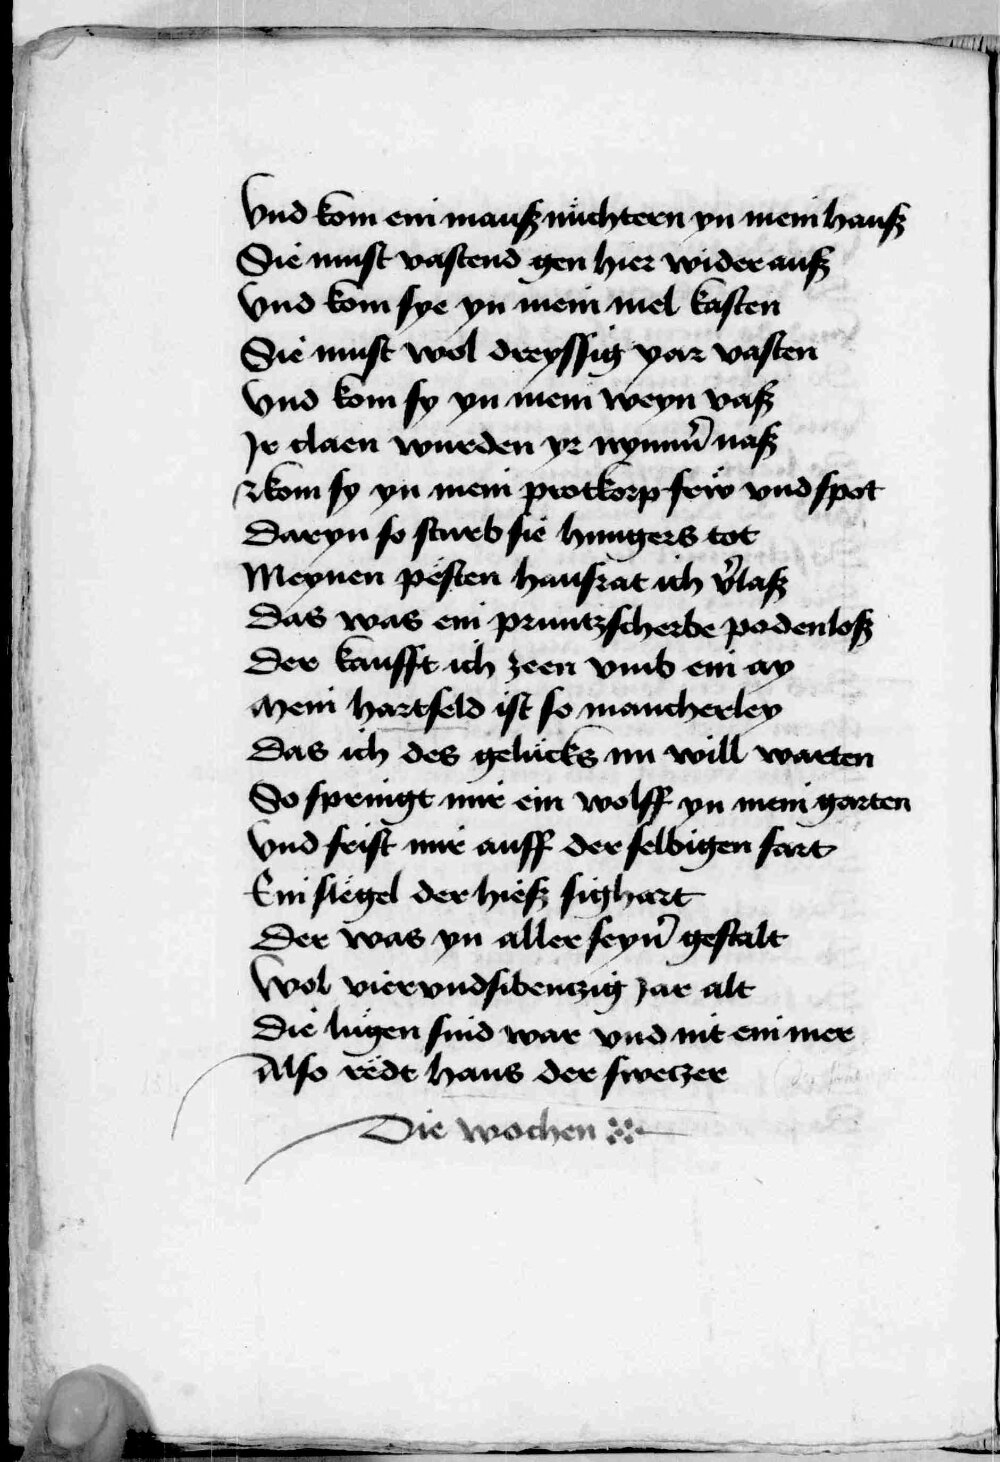 Vnd kom ein mausz nüchtern yn mein hausz
Sie must vastend gen hier wider ausz
Vnd kom sye yn mein mel kasten
Sie must wol dreyssig yar vasten
Vnd kom sy yn mein weyn vasz
Jr claen wurden yr nymm̄ nasz
kom sy yn mein protkorp frw vnd spot
Daryn so starb sie hungers tot
Meynen pesten hausrat ich v̄lasz
Das was ein pruntzscherbe podenlosz
Der kaufft ich zeen vmb ein ay
Mein hartseld ist so mancherley
Das ich des gelücks nu will warten
So springt mir ein wolff yn mein garten
Vnd frist mir auff der selbigen fart
Ein slegel der hiesz sighart
Der was yn aller seyn̄ gestalt
Wol viervndsibenczig jar alt
Die lügen sind war vnd nit ein mer
Also redt hans der sweczer
Die wochen